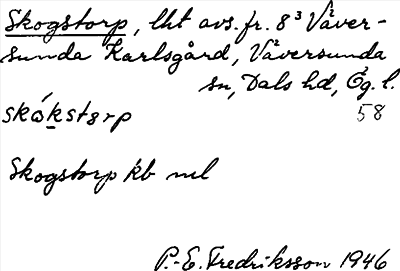 Skogstorp, lht avs. fr. 8³ Väver-
sunda Karlsgård, Väversunda
sn, Dals hd, Ög. l.
skó̱kstɘrp 58
Skogstorp kb ml
P.-E. Fredriksson 1946